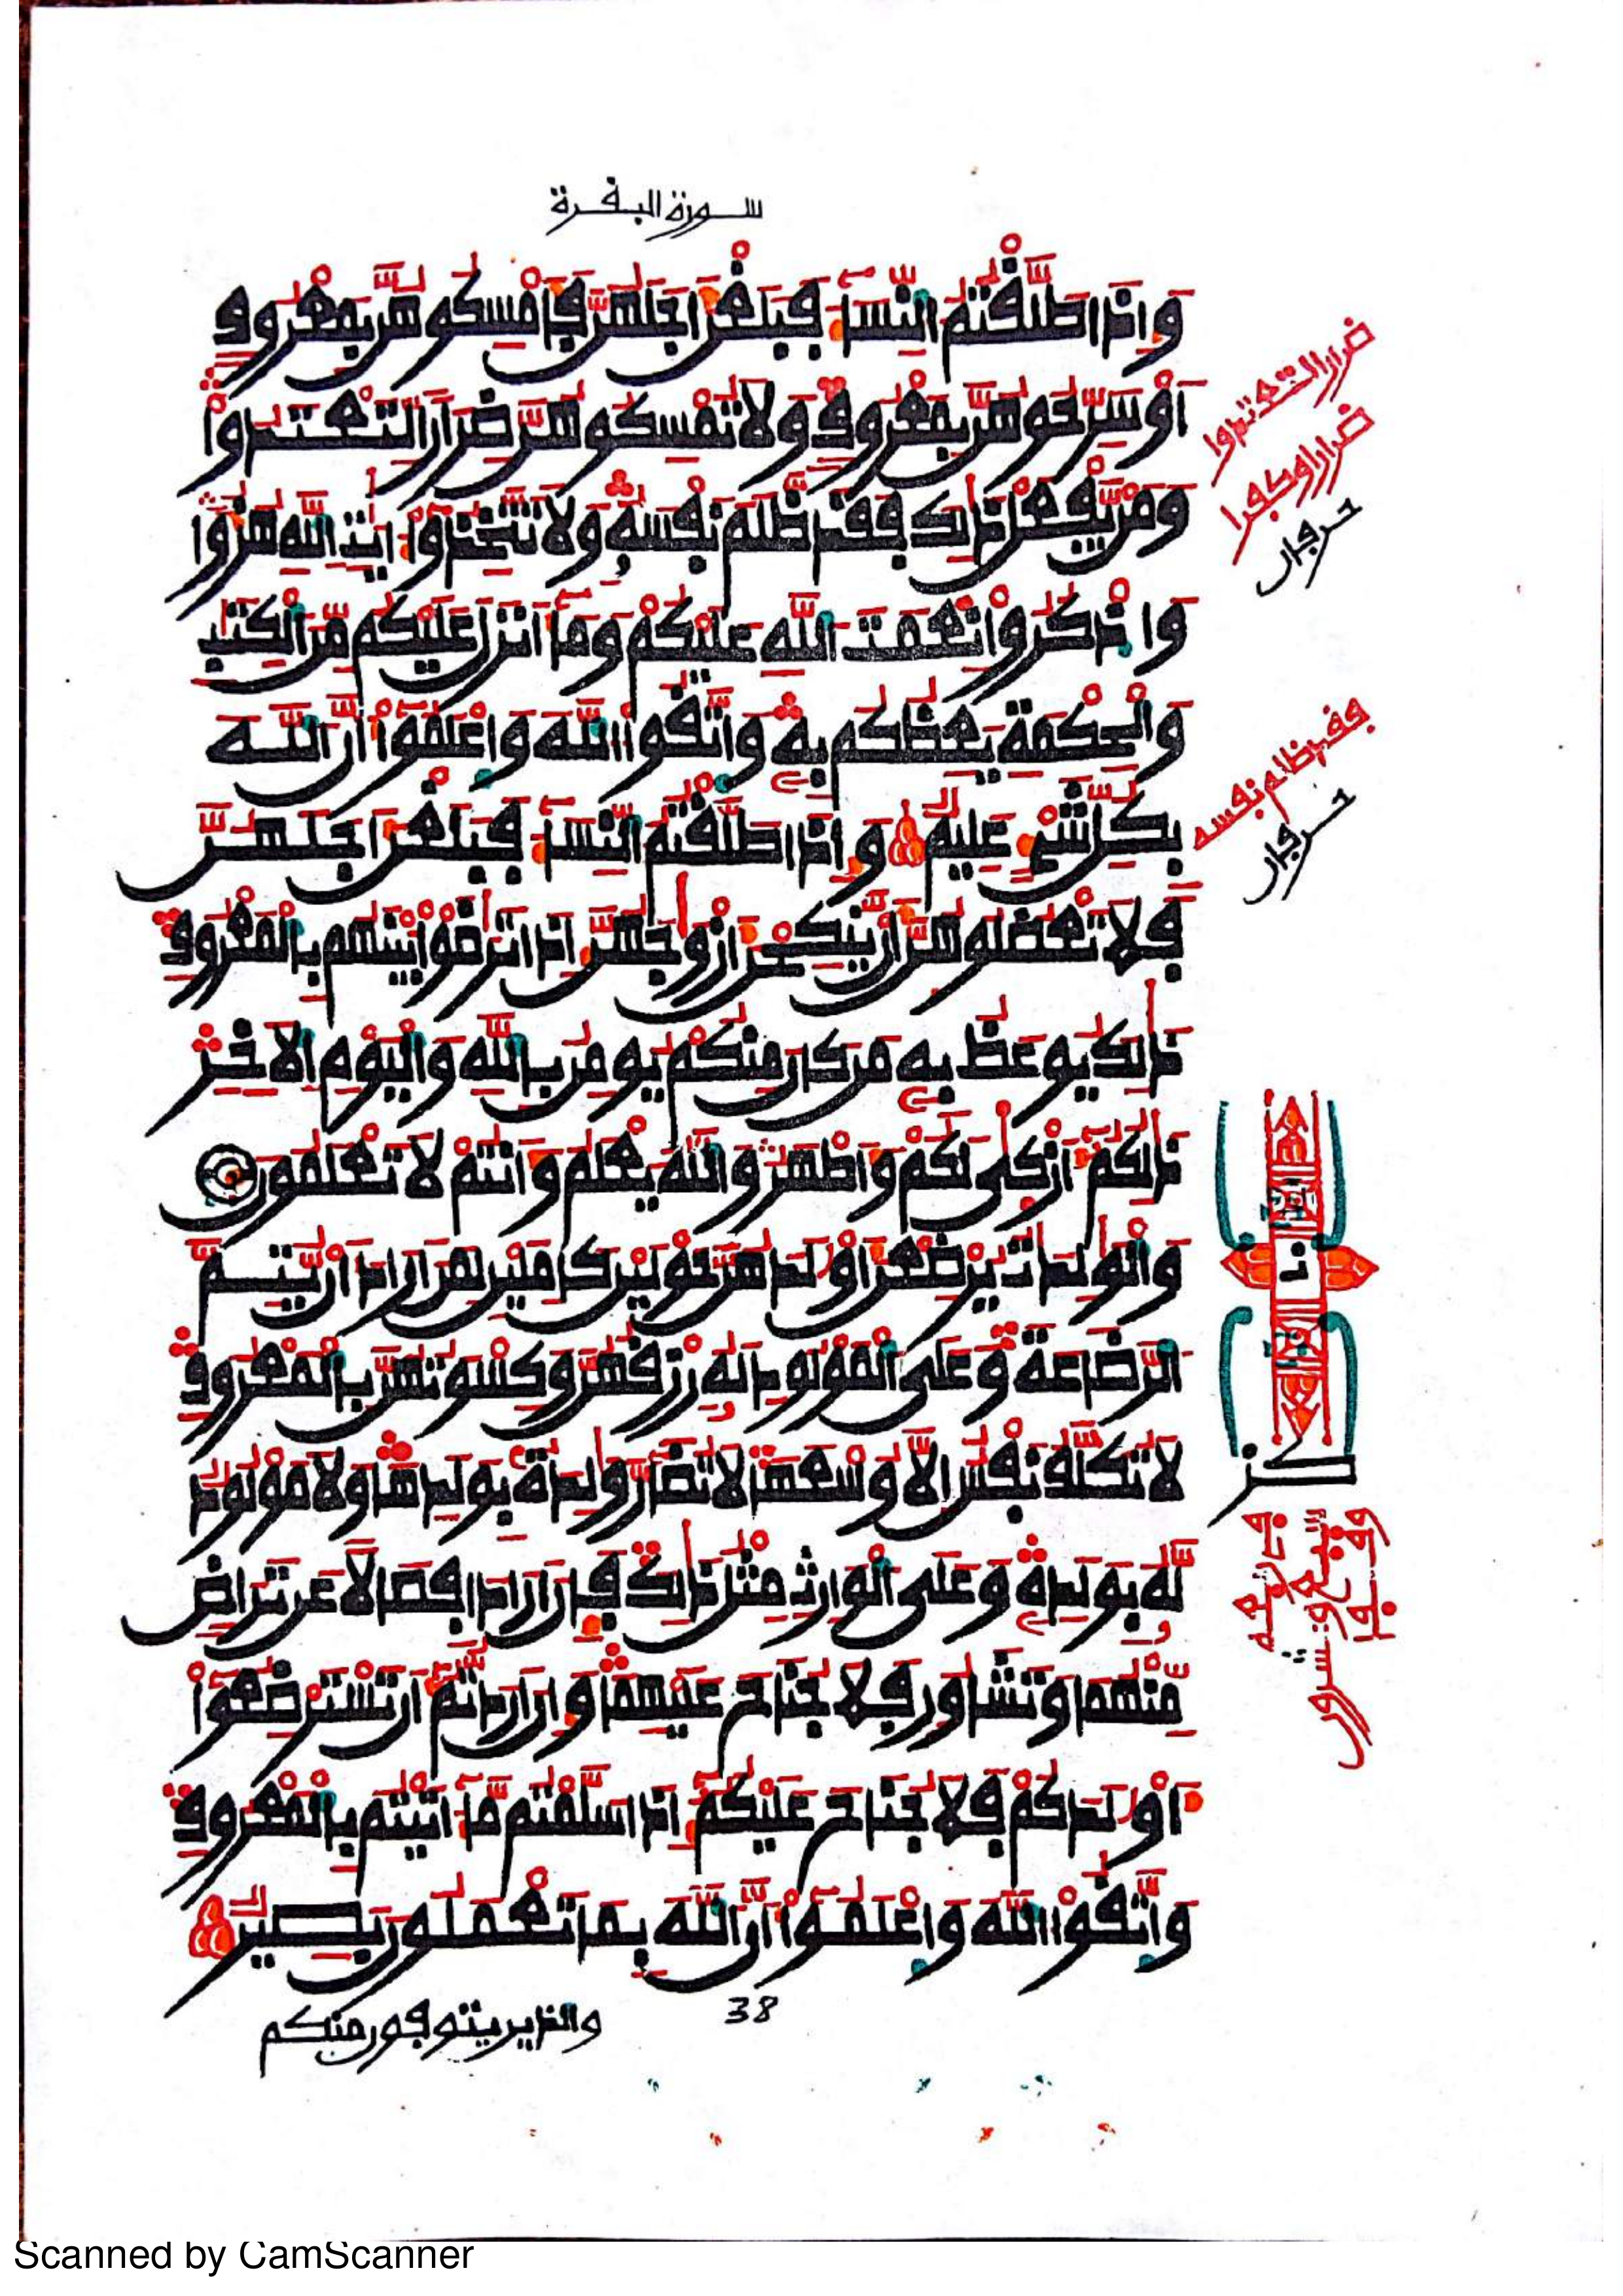 سورة البقرة
وَإِذَا طَلَّقْتُمُ النِّسَآءَ فَبَلَغْنَ أَجَلَهُنَّ فَأَمْسِكُوهُنَّ بِمَعْرُوفٍ
أَوْ سَرِّحُوهُنَّ بِمَعْرُوفٍ وَلَا تُمْسِكُوهُنَّ ضِرَارًا لِّتَعْتَدُوا
وَمَنْ يَّفْعَلْ ذَٰلِكَ فَقَد ظَّلَمَ نَفْسَهُ وَلَا تَتَّخِذُوٓا ءَايَٰتِ اللَّهِ هُزُؤًا
وَاذْكُرُوا نِعْمَتَ اللَّهِ عَلَيْكُمْ وَمَآ أَنزَلَ عَلَيْكُم مِّنَ الْكِتَٰبِ
وَالْحِكْمَةِ يَعِظُكُم بِهِ وَاتَّقُوا اللَّهَ وَاعْلَمُوٓا أَنَّ اللَّهَ
بِكُلِّ شَيْءٍ عَلِيمٌ وَإِذَا طَلَّقْتُمُ النِّسَآءَ فَبَلَغْنَ أَجَلَهُنَّ
فَلَا تَعْضُلُوهُنَّ أَنْ يَّنكِحْنَ أَزْوَٰجَهُنَّ إِذَا تَرَٰضَوْا بَيْنَهُم بِالْمَعْرُوفِ
ذَٰلِكَ يُوعَظُ بِهِ مَن كَانَ مِنكُمْ يُومِنُ بِاللَّهِ وَالْيَوْمِ الْآخِرِ
ذَٰلِكُمْ أَزْكَىٰ لَكُمْ وَأَطْهَرُ وَاللَّهُ يَعْلَمُ وَأَنتُمْ لَا تَعْلَمُونَ
وَالْوَٰلِدَٰتُ يُرْضِعْنَ أَوْلَٰدَهُنَّ حَوْلَيْنِ كَامِلَيْنِ لِمَنْ أَرَادَ أَنْ يُّتِمَّ
الرَّضَاعَةَ وَعَلَى الْمَوْلُودِ لَهُ رِزْقُهُنَّ وَكِسْوَتُهُنَّ بِالْمَعْرُوفِ
لَا تُكَلَّفُ نَفْسٌ إِلَّا وُسْعَهَا لَا تُضَآرَّ وَٰلِدَةٌ بِوَلَدِهَا وَلَا مَوْلُودٌ
لَّهُ بِوَلَدِهِ وَعَلَى الْوَارِثِ مِثْلُ ذَٰلِكَ فَإِنْ أَرَادَا فِصَالًا عَن تَرَاضٍ
مِّنْهُمَا وَتَشَاوُرٍ فَلَا جُنَاحَ عَلَيْهِمَا وَإِنْ أَرَدتُّمْ أَن تَسْتَرْضِعُوٓا
أَوْلَٰدَكُمْ فَلَا جُنَاحَ عَلَيْكُمْ إِذَا سَلَّمْتُم مَّآ ءَاتَيْتُم بِالْمَعْرُوفِ
وَاتَّقُوا اللَّهَ وَاعْلَمُوٓا أَنَّ اللَّهَ بِمَا تَعْمَلُونَ بَصِيرٌ
38
والذين يتوفون منكم
ضرارا لتعتدوا
ضرارا وكفرا
حرفان
فقد ظلم نفسه
حرفان
Scanned by CamScanner